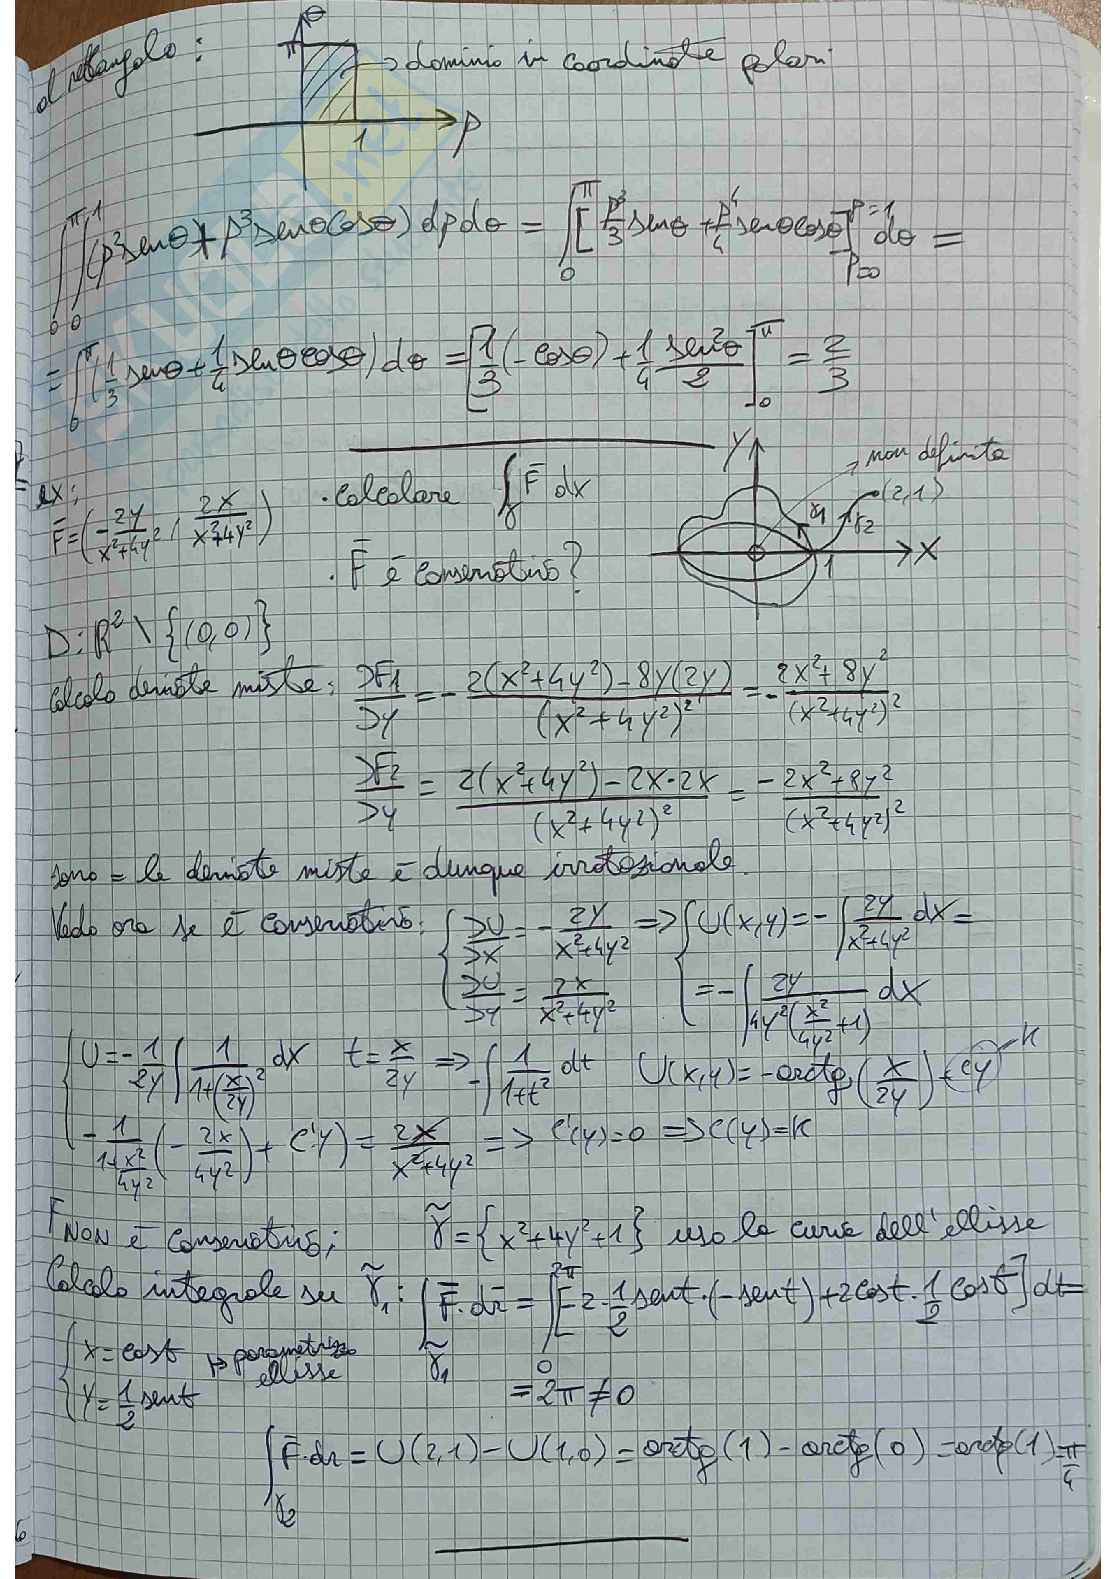 al rettangolo:
θ
π
→ dominio in coordinate polari
1
ρ
∫₀^π ∫₀^1 (ρ² senθ + ρ³ senθ cosθ) dρ dθ = ∫₀^π [ρ³/3 senθ + ρ⁴/4 senθ cosθ]_{ρ=0}^{ρ=1} dθ =
= ∫₀^π (1/3 senθ + 1/4 senθ cosθ) dθ = [1/3 (-cosθ) + 1/4 sen²θ/2]₀^π = 2/3
ex:
F̄ = (-2y/(x²+4y²), 2x/(x²+4y²))
· Calcolare ∫_γ F̄ dx
· F̄ è conservativo?
Y
→ non definita
(2,1)
γ1
γ2
1
X
D: R² \ {(0,0)}
Calcolo derivate miste: ∂F1/∂y = - (2(x²+4y²) - 8y(2y))/(x²+4y²)² = - (2x²+8y²)/(x²+4y²)²
∂F2/∂y = (2(x²+4y²) - 2x·2x)/(x²+4y²)² = (-2x²+8y²)/(x²+4y²)²
sono = le derivate miste è dunque irrotazionale.
Vedo ora se è conservativo: { ∂U/∂x = - 2y/(x²+4y²) => { U(x,y) = - ∫ 2y/(x²+4y²) dx =
∂U/∂y = 2x/(x²+4y²)
= - ∫ 2y/(4y²(x²/4y² + 1)) dx
{ U = - 1/2y ∫ 1/(1+(x/2y)²) dx t = x/2y => - ∫ 1/(1+t²) dt U(x,y) = -arctg(x/2y) + c(y) K
- 1/(1+x²/4y²) (- 2x/4y²) + C'(y) = 2x/(x²+4y²) => C'(y) = 0 => C(y) = K
F NON è conservativo; γ̃ = {x²+4y²+1} uso la curva dell'ellisse
Calcolo integrale su γ̃₁: ∫_γ̃₁ F̄·dr̄ = ∫₀^2π [-2·1/2 sent·(-sent) + 2cost·1/2 cost] dt =
{ x = cost ↦ parametrizzo ellisse
y = 1/2 sent
= 2π ≠ 0
∫_γ2 F̄·dr = U(2,1) - U(1,0) = arctg(1) - arctg(0) = arctg(1) = π/4